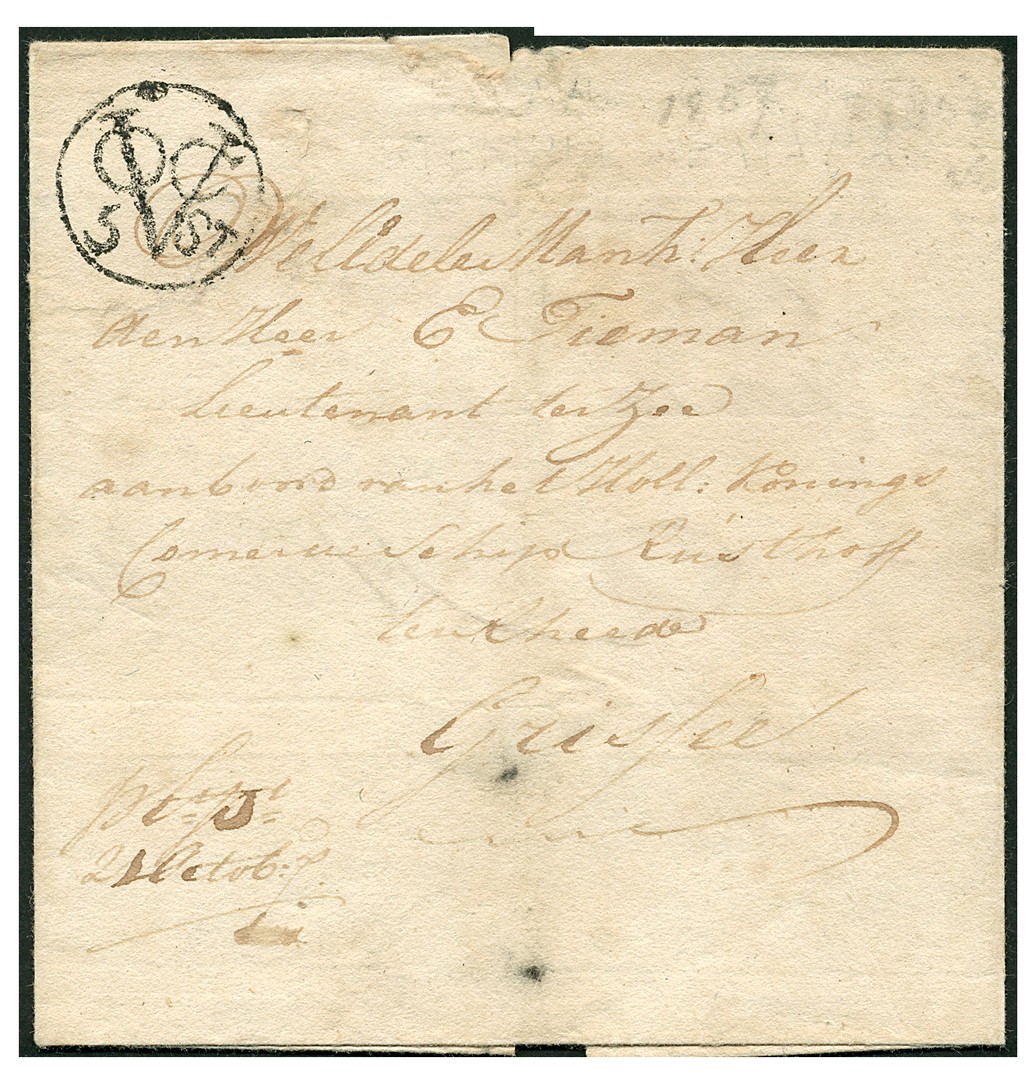 5 ST
WelEdele Manh. Heer
den Heer E Tieman
Lieutenant ter Zee
aanboord van het Holl: Konings
Schip Rusthoff
ter Rheede
Grissee
21 Octob: